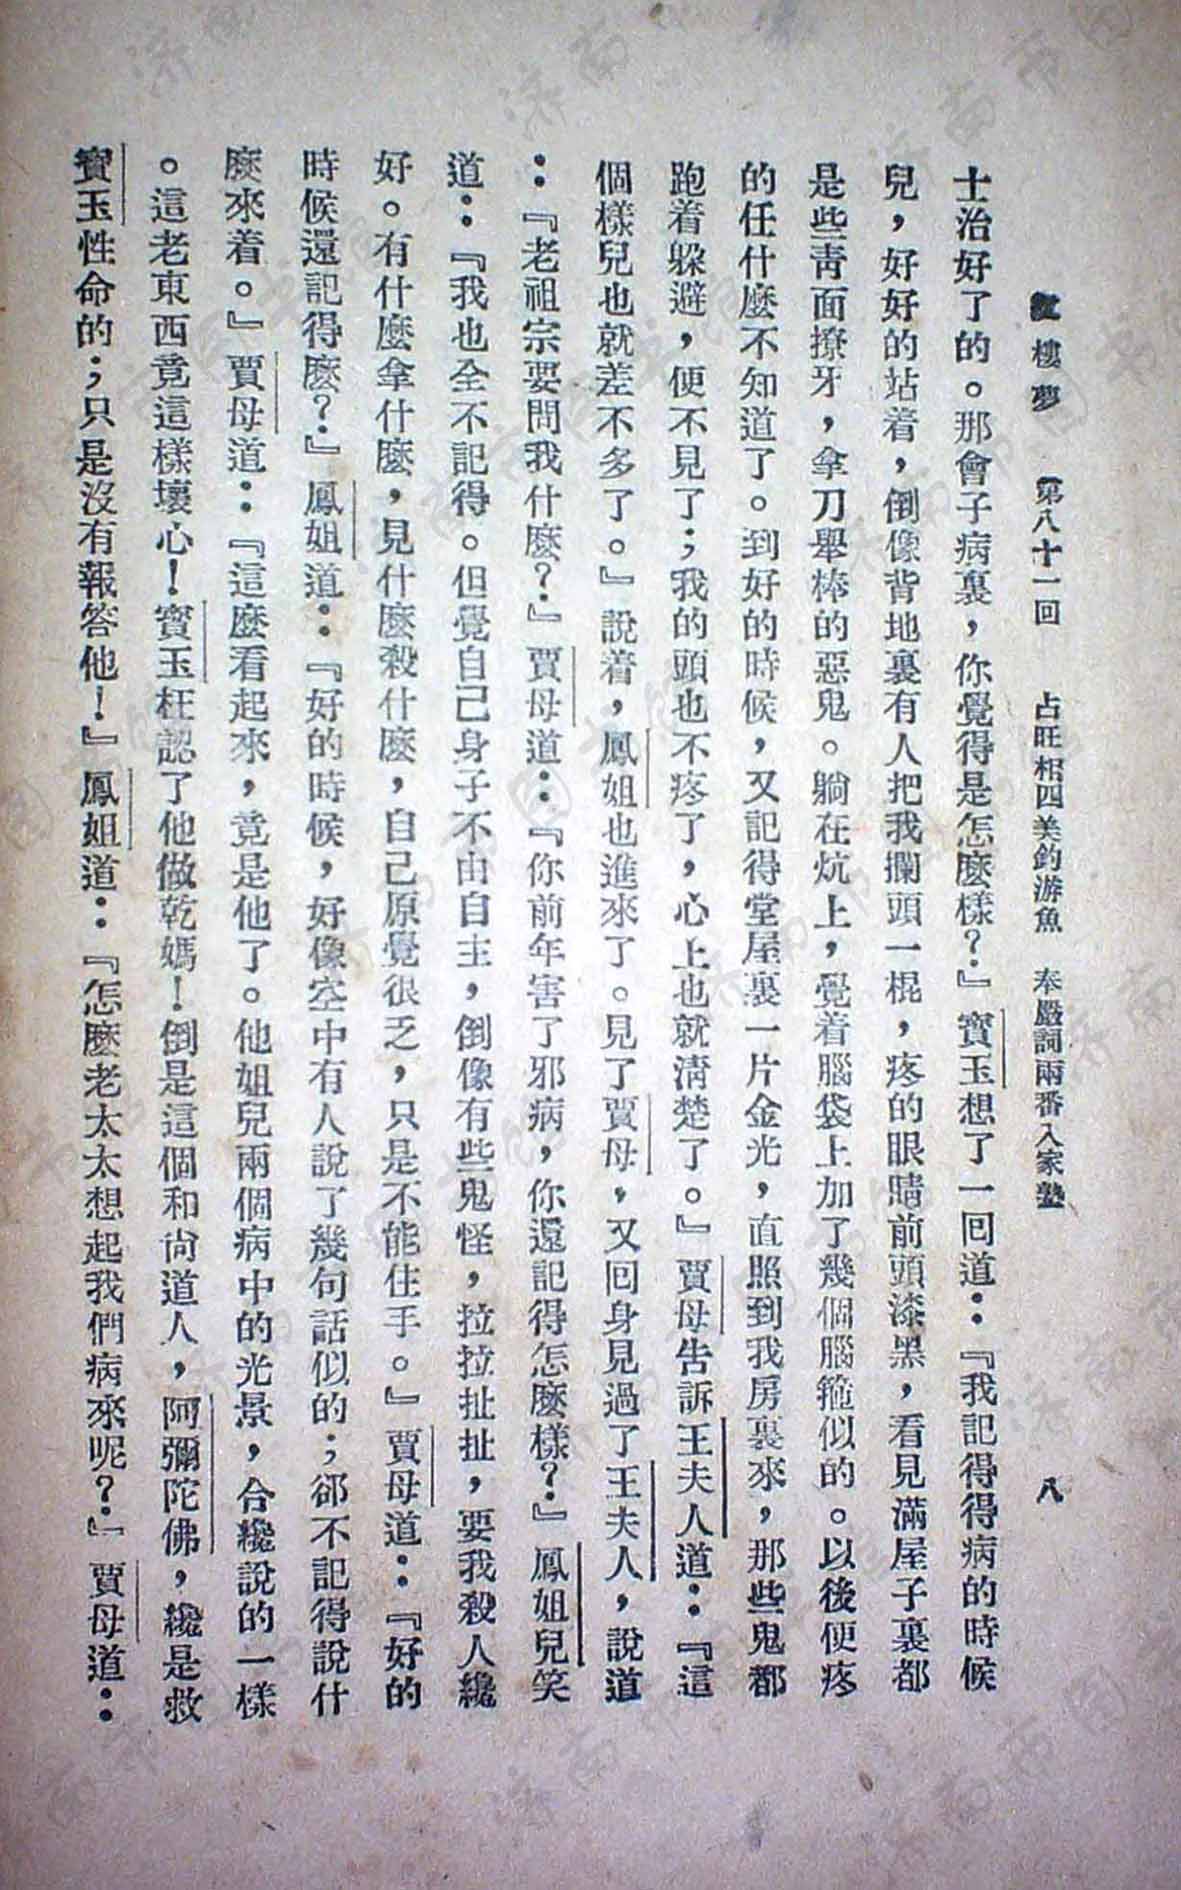 紅樓夢 第八十一回 占旺相四美釣游魚 奉嚴詞兩番入家塾 八
士治好了的。那會子病裏，你覺得是怎麼樣？』寶玉想了一回道：『我記得得病的時候
兒，好好的站着，倒像背地裏有人把我攔頭一棍，疼的眼睛前頭漆黑，看見滿屋子裏都
是些靑面撩牙，拿刀舉棒的惡鬼。躺在炕上，覺着腦袋上加了幾個腦箍似的。以後便疼
的任什麼不知道了。到好的時候，又記得堂屋裏一片金光，直照到我房裏來，那些鬼都
跑着躱避，便不見了；我的頭也不疼了，心上也就淸楚了。』賈母告訴王夫人道：『這
個樣兒也就差不多了。』說着，鳳姐也進來了。見了賈母，又回身見過了王夫人，說道
：『老祖宗要問我什麼？』賈母道：『你前年害了邪病，你還記得怎麼樣？』鳳姐兒笑
道：『我也全不記得。但覺自己身子不由自主，倒像有些鬼怪，拉拉扯扯，要我殺人纔
好。有什麼拿什麼，見什麼殺什麼，自己原覺很乏，只是不能住手。』賈母道：『好的
時候還記得麼？』鳳姐道：『好的時候，好像空中有人說了幾句話似的；卻不記得說什
麼來着。』賈母道：『這麼看起來，竟是他了。他姐兒兩個病中的光景，合纔說的一樣
。這老東西竟這樣壞心！寶玉枉認了他做乾媽！倒是這個和尙道人，阿彌陀佛，纔是救
寶玉性命的；只是沒有報答他！』鳳姐道：『怎麼老太太想起我們病來呢？』賈母道：